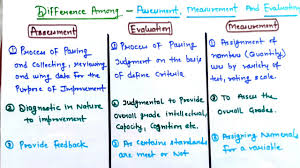 Difference Among - Assessment, Measurement And Evaluation
Assessment
① Process of Pasing
and Collecting, reviewing
and using data for the
Purpose of Improvement
② Diagnostic in Nature
to improvement
③ Provide feedback
Evaluation
① Process of Pasing
Judgment on the basis
of define Criteria
② Judgmental to Provide
overall grade intellectual,
Capacity, Cognition etc.
③ As Certains standards
are meet or Not
Measurement
① Assignment of
numbers (Quantity)
by variety of
test, rating scale.
② To Asses the
Overall Grades.
③ Assigning Numerals
for a variable